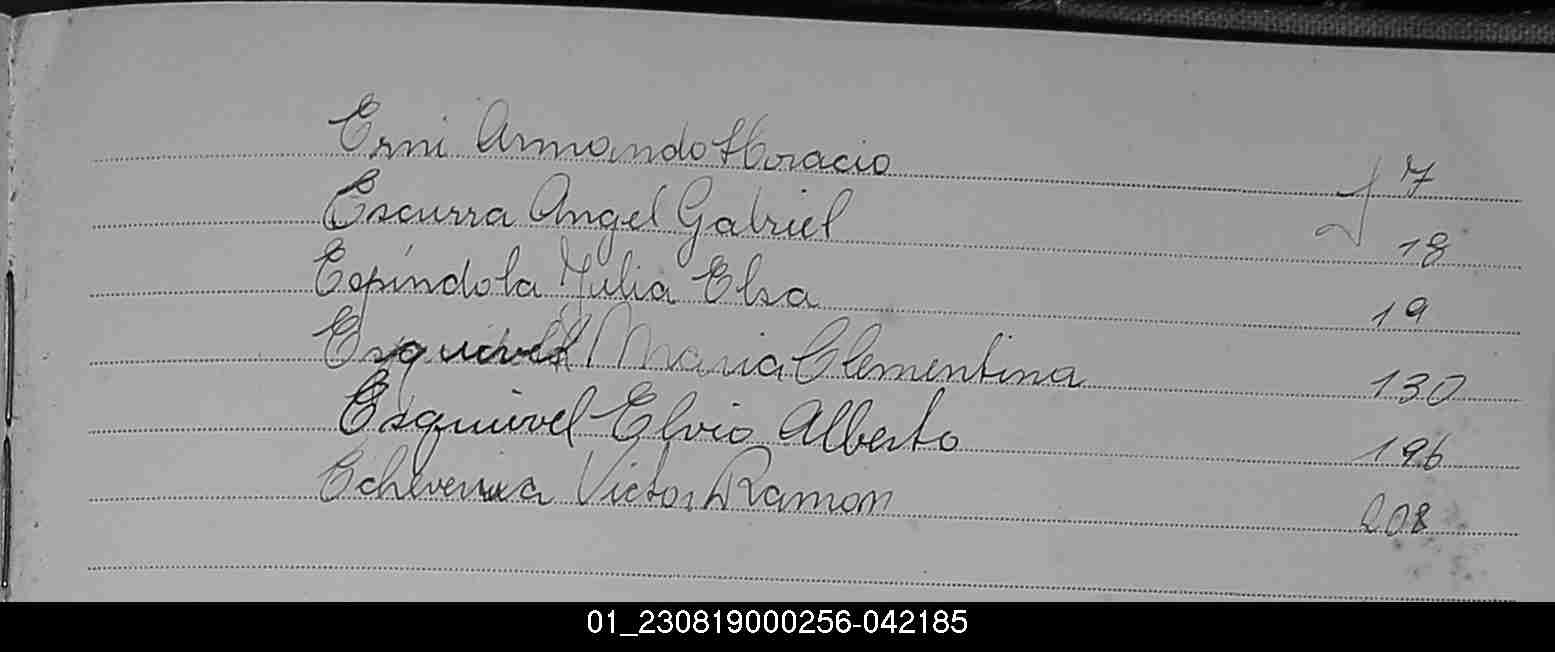 Erni Armando Horacio 7
Escurra Angel Gabriel 18
Espíndola Julia Elsa 19
Esquivel Maria Clementina 130
Esquivel Elvio Alberto 196
Echeverria Victor Ramon 208
01_230819000256-042185